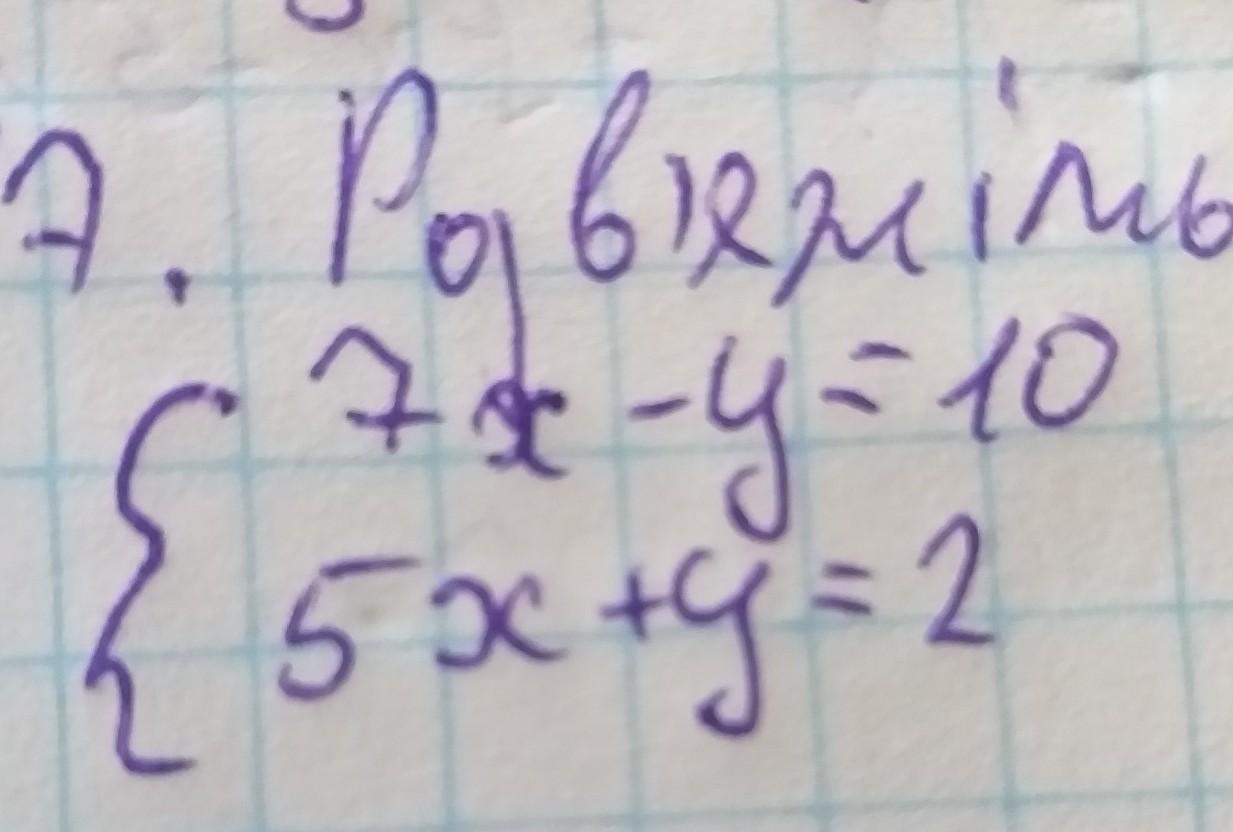 7. Розв'яжіть
{ 7x - y = 10
5x + y = 2